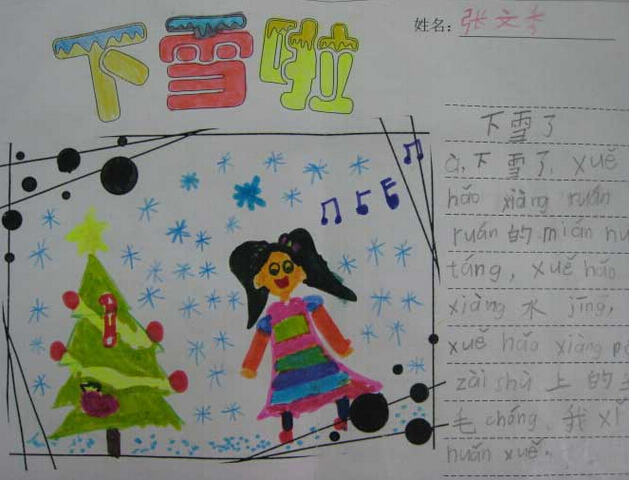 下雪啦
姓名: 张文秀
下雪了
à,下雪了,xuě
hǎo xiàng ruǎn
ruǎn 的 mián hu
táng, xuě hǎo
xiàng 水 jīng,
xuě hǎo xiàng
zài shù 上 的
毛 cháng, 我 xǐ
huān xuě.